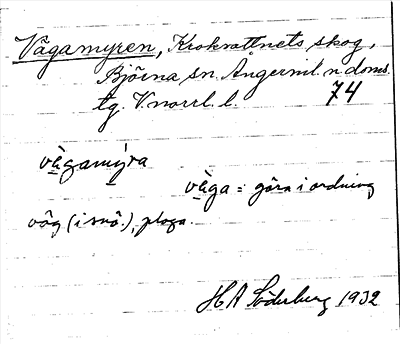 Vägamyren, Krokvattnets skog,
Björna sn. Ångerml. n. doms.
tg. V.norrl. l. 74
vä̀gamýra
vä̀ga = göra i ordning
väg (i snö.), ploga.
H A Söderberg 1932